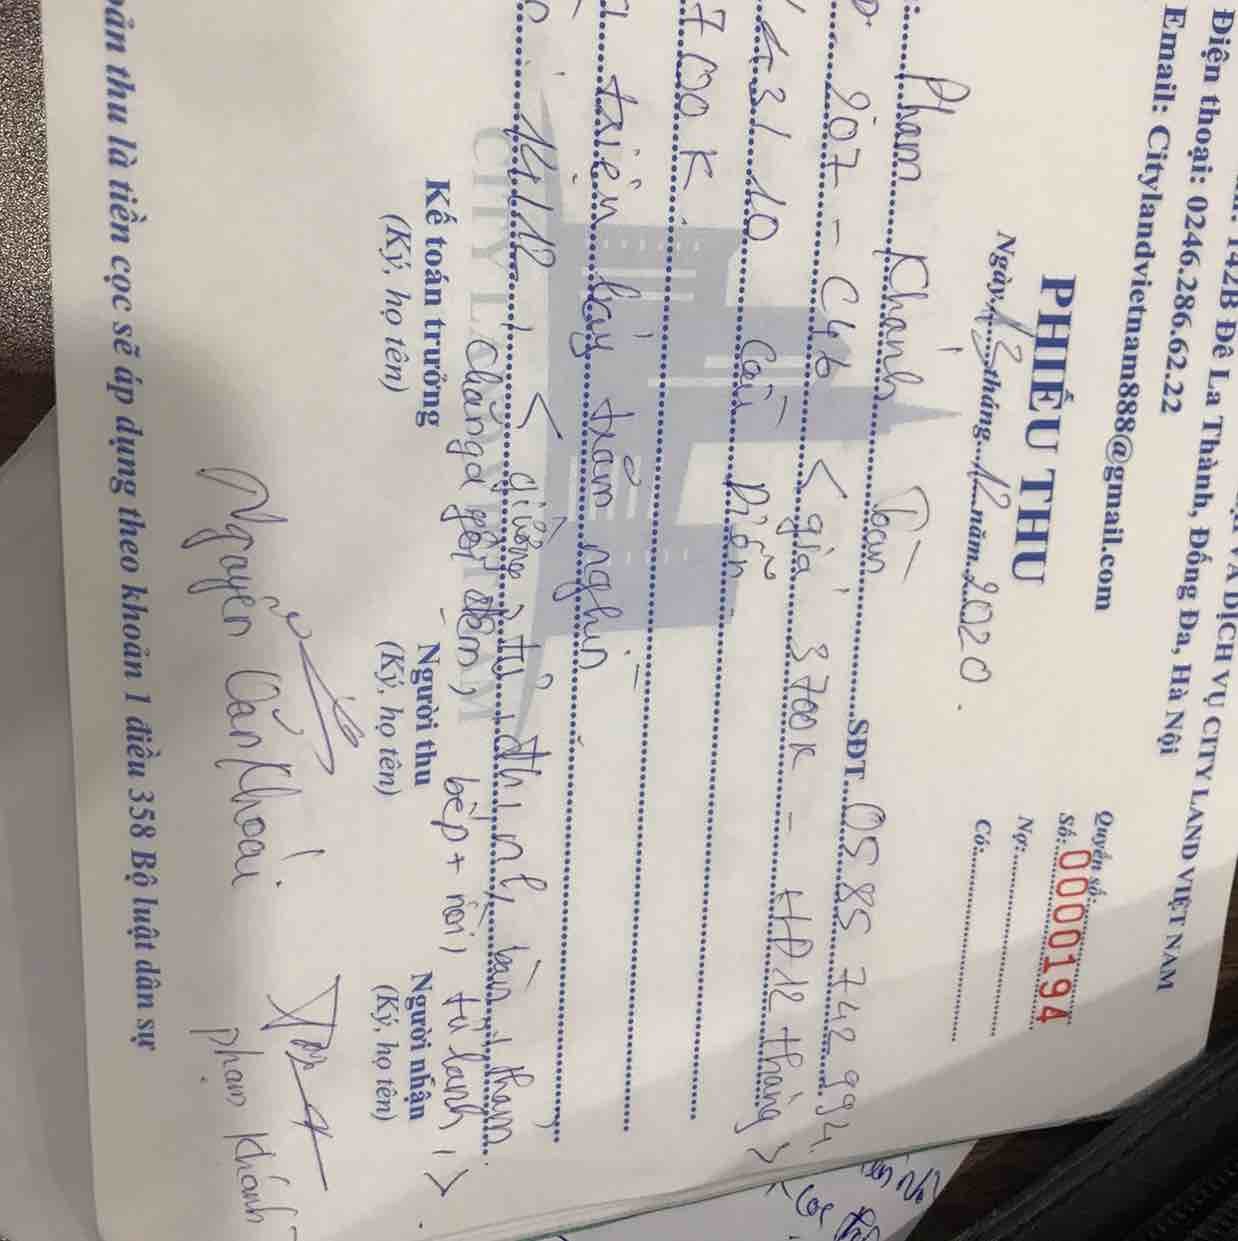 VÀ DỊCH VỤ CITY LAND VIỆT NAM
142B Đê La Thành, Đống Đa, Hà Nội
Điện thoại: 0246.286.62.22
Email: Citylandvietnam888@gmail.com
Quyển số:
PHIẾU THU
Số: 0000194
Ngày 13 tháng 12 năm 2020.
Nợ:
Có:
Phạm Khánh Toàn SĐT 0585 742 994
P. 207 - C46 < giá 3700K - HĐ 12 tháng >
/ 43 / 10 Cầu Diễn
700 K.
triệu bảy trăm nghìn
14/12 < giường, tủ, đhi nl, bàn, thảm
chăn ga gối đệm, bếp + nồi, tủ lạnh, >.
CITY LAND VIETNAM
Kế toán trưởng Người thu Người nhận
(Ký, họ tên) (Ký, họ tên) (Ký, họ tên)
Nguyễn Văn Khoái.
Phạm Khánh
oản thu là tiền cọc sẽ áp dụng theo khoản 1 điều 358 Bộ luật dân sự